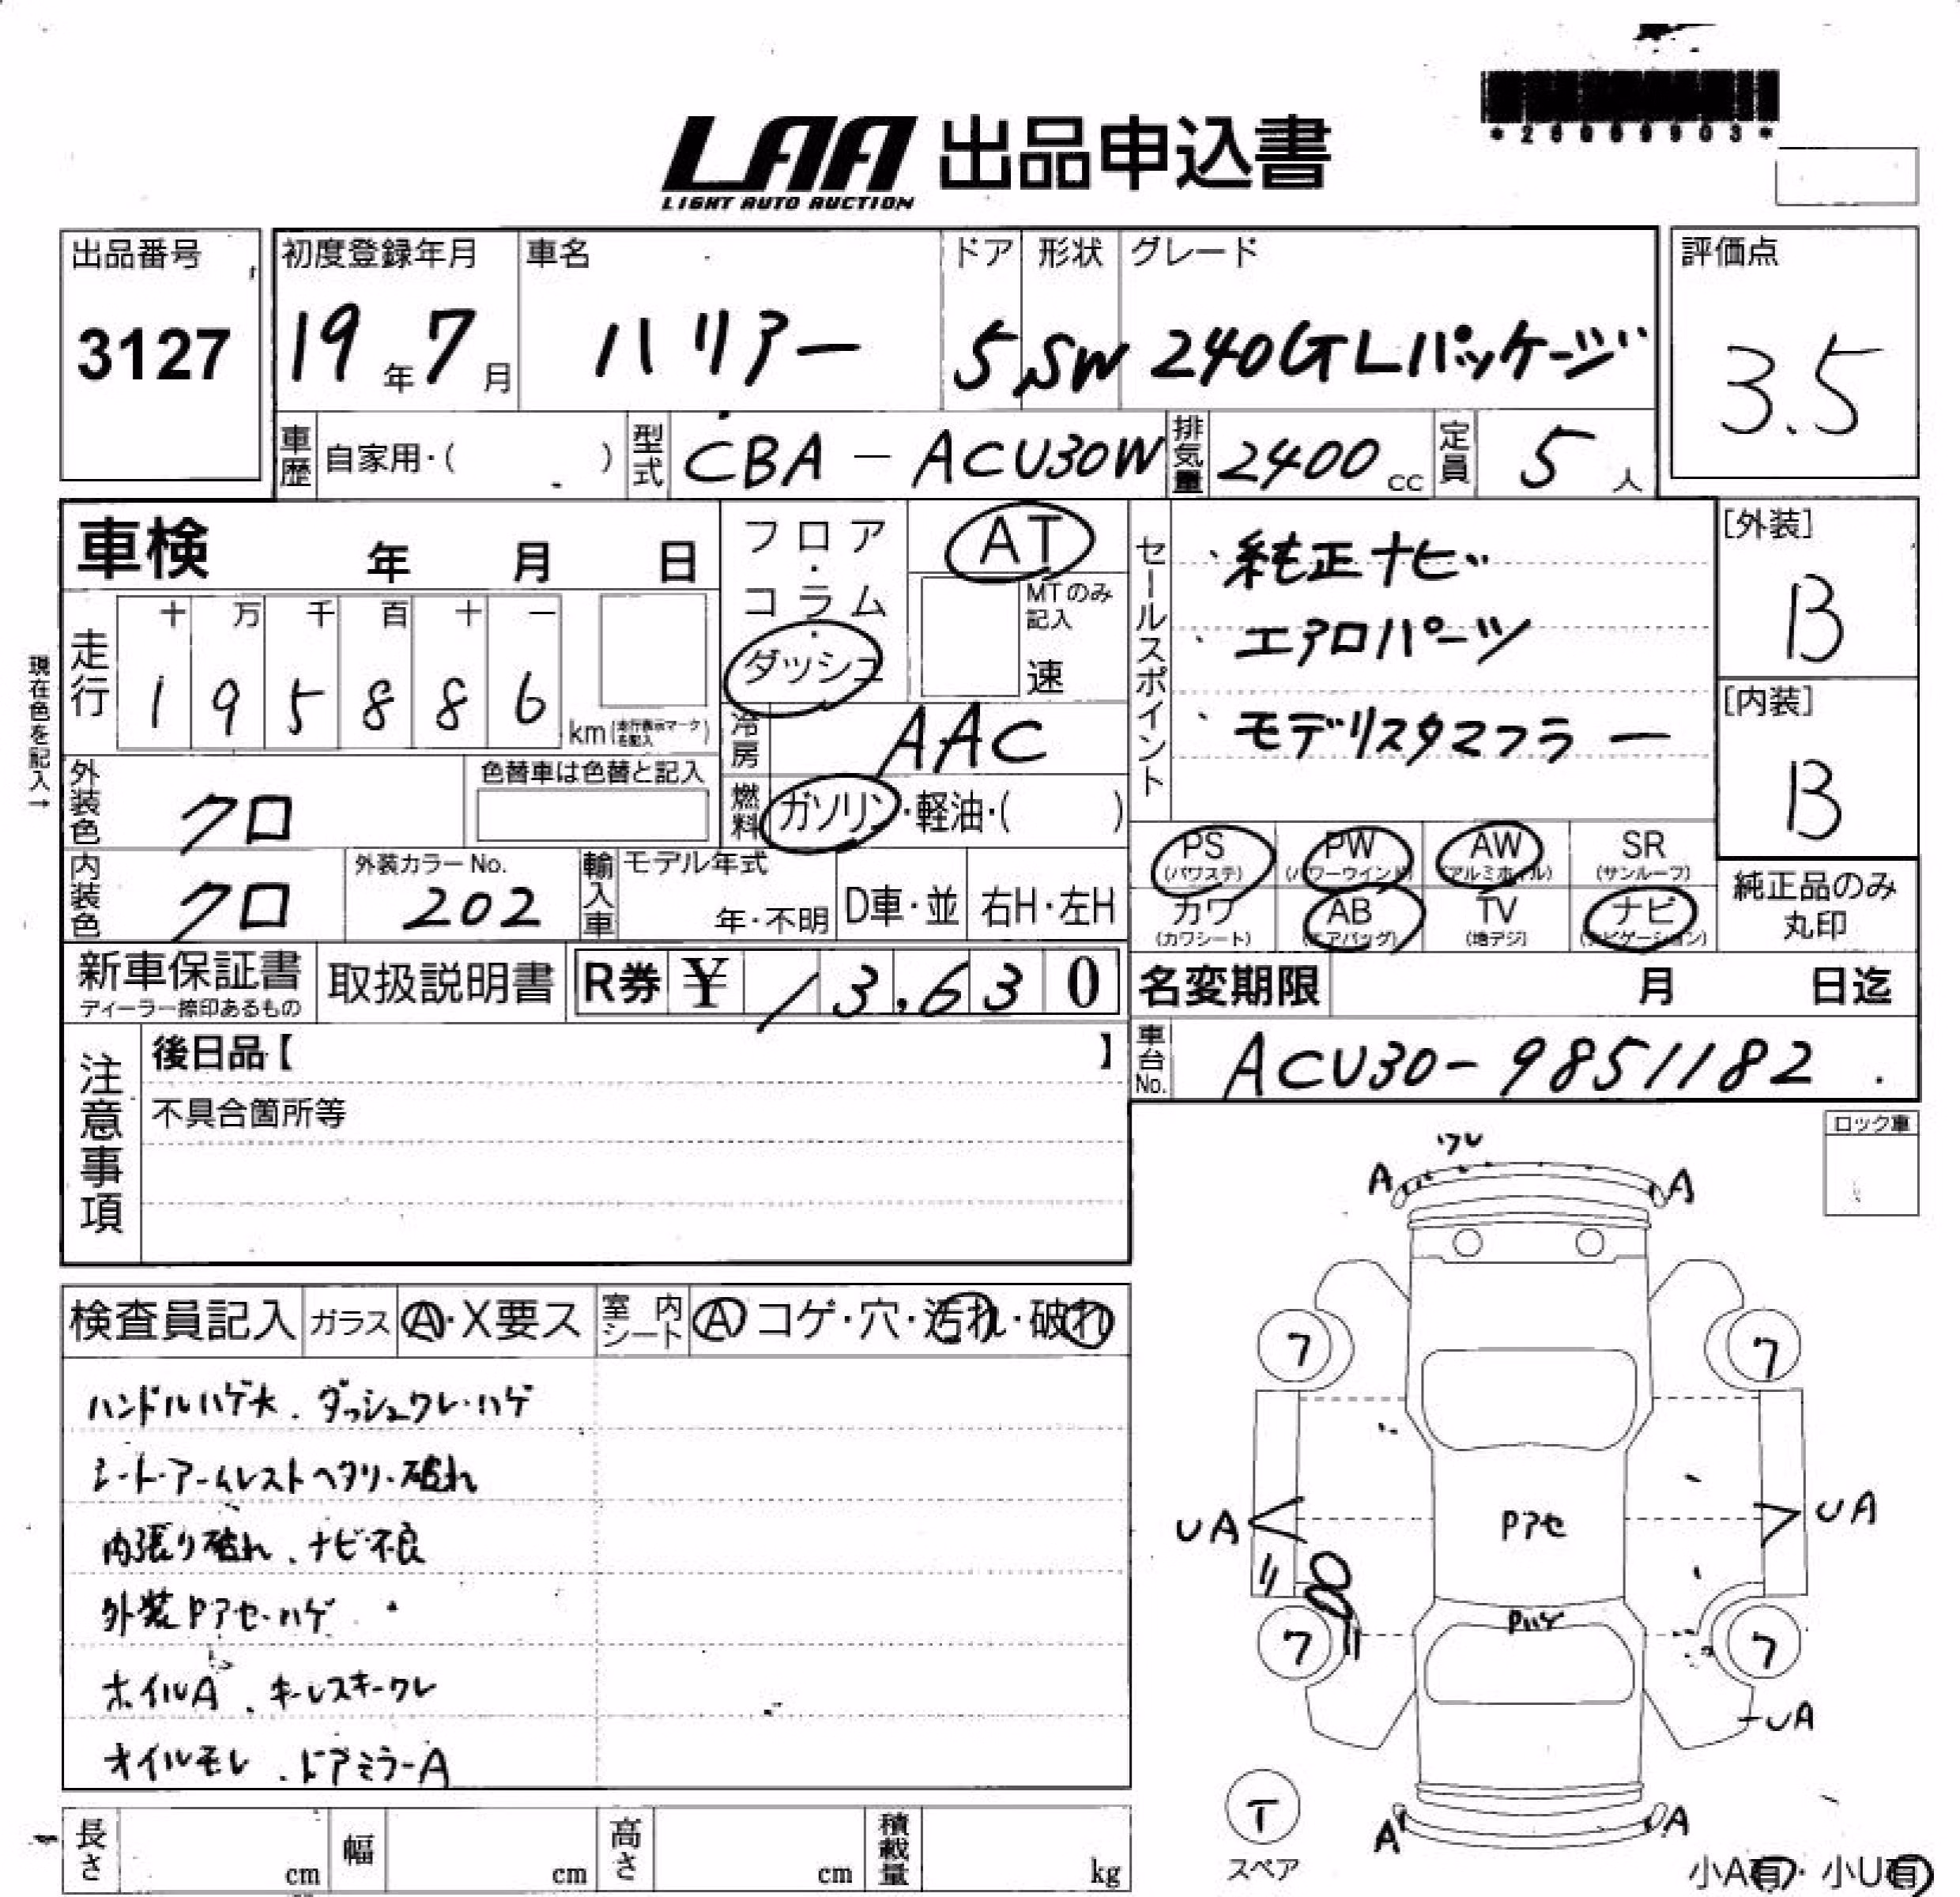 *26009903*
LAA 出品申込書
LIGHT AUTO AUCTION
出品番号
3127
初度登録年月
19年7月
車名
ハリアー
ドア
5
形状
SW
グレード
240G Lパッケージ
評価点
3.5
車歴 自家用・( )
型式 CBA-ACU30W
排気量 2400cc
定員 5人
車検 年 月 日
フロア・コラム・ダッシュ
AT
MTのみ記入
速
セールスポイント
、純正ナビ
、エアロパーツ
、モデリスタマフラー
[外装]
B
[内装]
B
現在色を記入→
走行
十 万 千 百 十 一
1 9 5 8 8 6
km(走行表示マークを記入)
冷房 AAC
燃料 ガソリン・軽油・( )
外装色 クロ
色替車は色替と記入
内装色 クロ
外装カラーNo.
202
輸入車 モデル年式
年・不明
D車・並
右H・左H
PS (パワステ)
PW (パワーウインド)
AW (アルミホイル)
SR (サンルーフ)
カワ (カワシート)
AB (エアバッグ)
TV (地デジ)
ナビ (ナビゲーション)
純正品のみ丸印
新車保証書
ディーラー捺印あるもの
取扱説明書
R券 ¥ 13,630
名変期限 月 日迄
車台No. ACU30-9851182
注意事項
後日品【 】
不具合箇所等
ロック車
検査員記入 ガラス A・X要ス
室内シート A コゲ・穴・汚れ・破れ
ハンドルハゲ大、ダッシュワレ・ハゲ
シート・アームレストヘタリ・破れ
内張り破れ、ナビ不良
外装Pアセ・ハゲ
ホイルA、キーレスキーワレ
オイルモレ、ドアミラーA
ワレ
A A
7 7
UA Pアセ UA
Pハゲ
7 7
UA
T
スペア
A A
小A有・小U有
長さ cm
幅 cm
高さ cm
積載量 kg